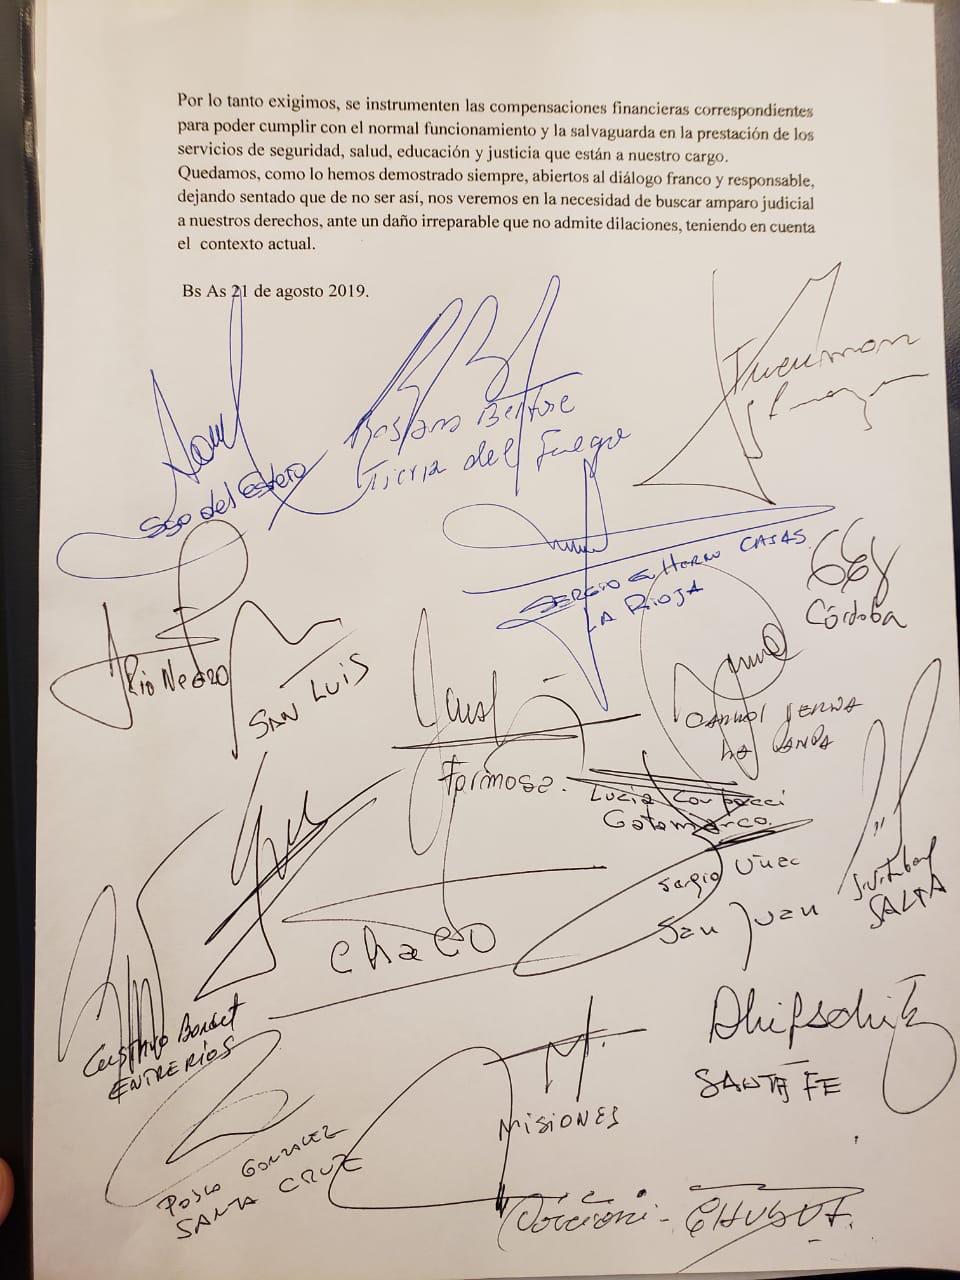 Por lo tanto exigimos, se instrumenten las compensaciones financieras correspondientes
para poder cumplir con el normal funcionamiento y la salvaguarda en la prestación de los
servicios de seguridad, salud, educación y justicia que están a nuestro cargo.
Quedamos, como lo hemos demostrado siempre, abiertos al diálogo franco y responsable,
dejando sentado que de no ser así, nos veremos en la necesidad de buscar amparo judicial
a nuestros derechos, ante un daño irreparable que no admite dilaciones, teniendo en cuenta
el contexto actual.
Bs As 21 de agosto 2019.
Tucuman
Tierra del Fuego
Sgo del Estero
SERGIO G. CASAS
LA RIOJA
Córdoba
Rio NEGRO
SAN LUIS
LA PAMPA
Formosa.
Lucia Corpacci
Catamarca.
Sergio Uñac
San Juan
SALTA
Chaco
GUSTAVO Bordet
ENTRE RIOS
Lifschitz
SANTA FE
MISIONES
GONZALEZ
SANTA CRUZ
Arcioni - CHUBUT.